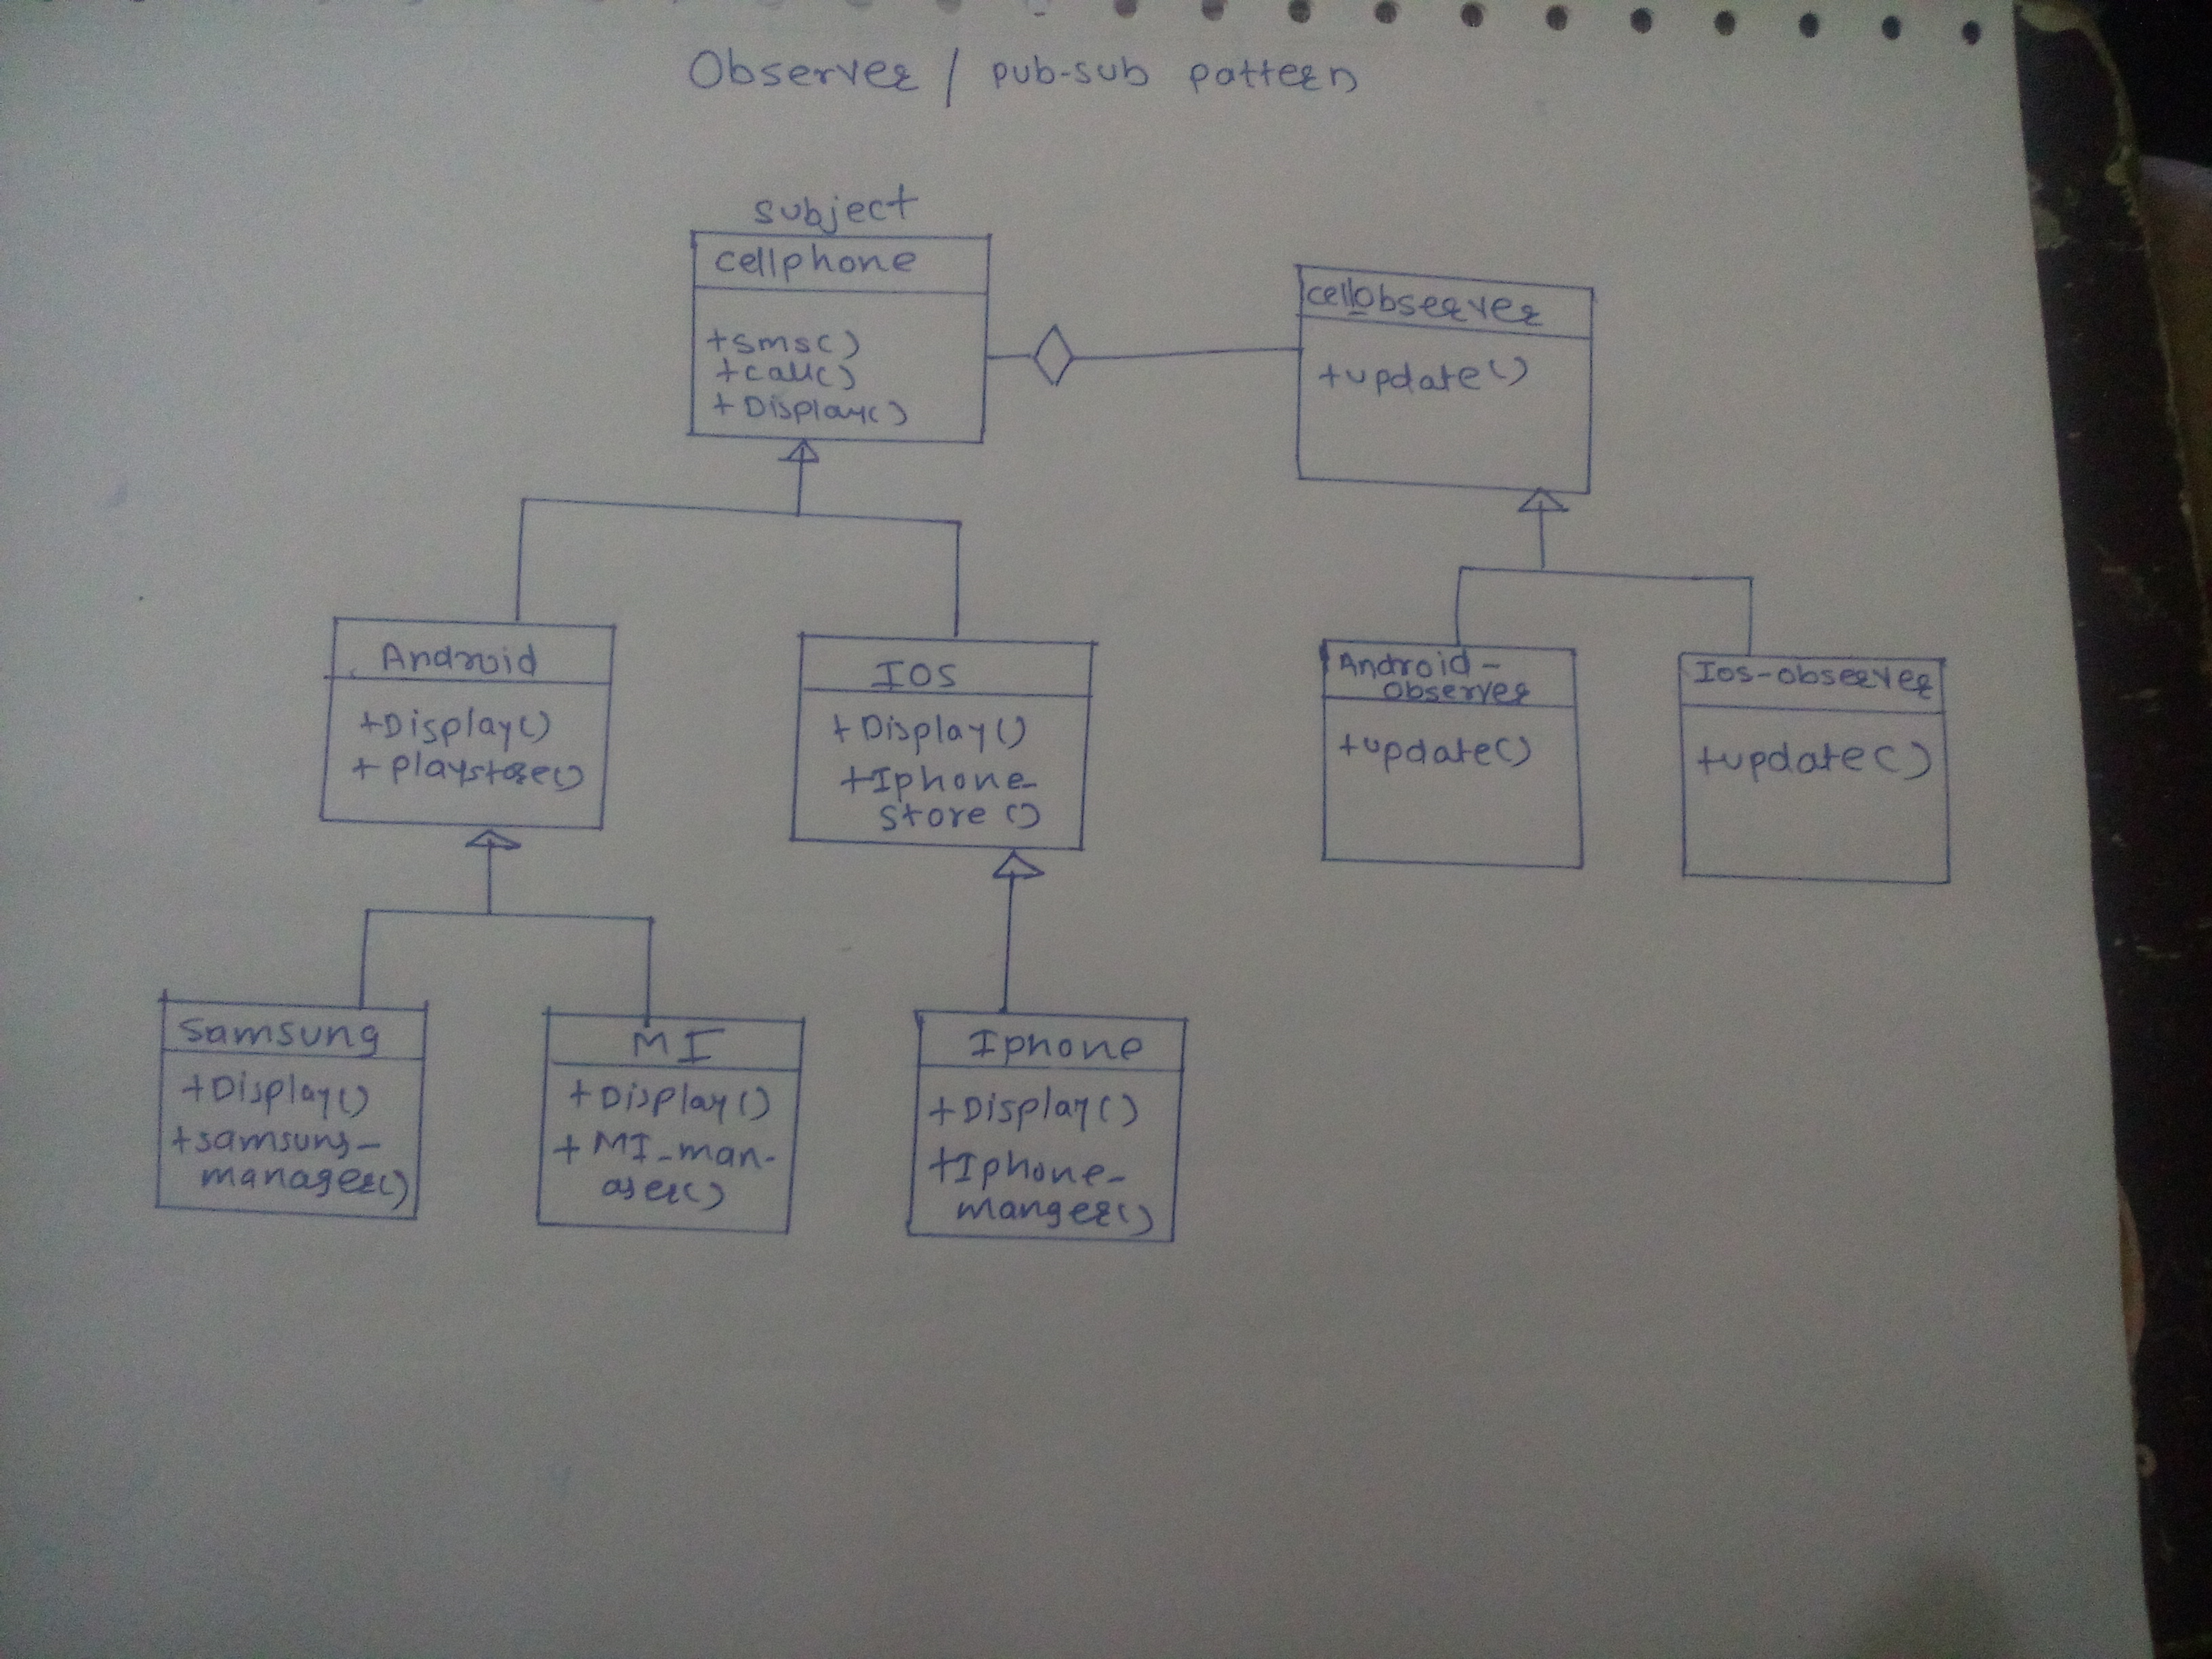 Observer / pub-sub pattern
subject
cellphone
+sms()
+call()
+Display()
cellobserver
+update()
Android
+Display()
+playstore()
IOS
+Display()
+Iphone-
store()
Android-
observer
+update()
Ios-observer
+update()
samsung
+Display()
+samsung-
manager()
MI
+Display()
+MI-man-
ager()
Iphone
+Display()
+Iphone-
manger()